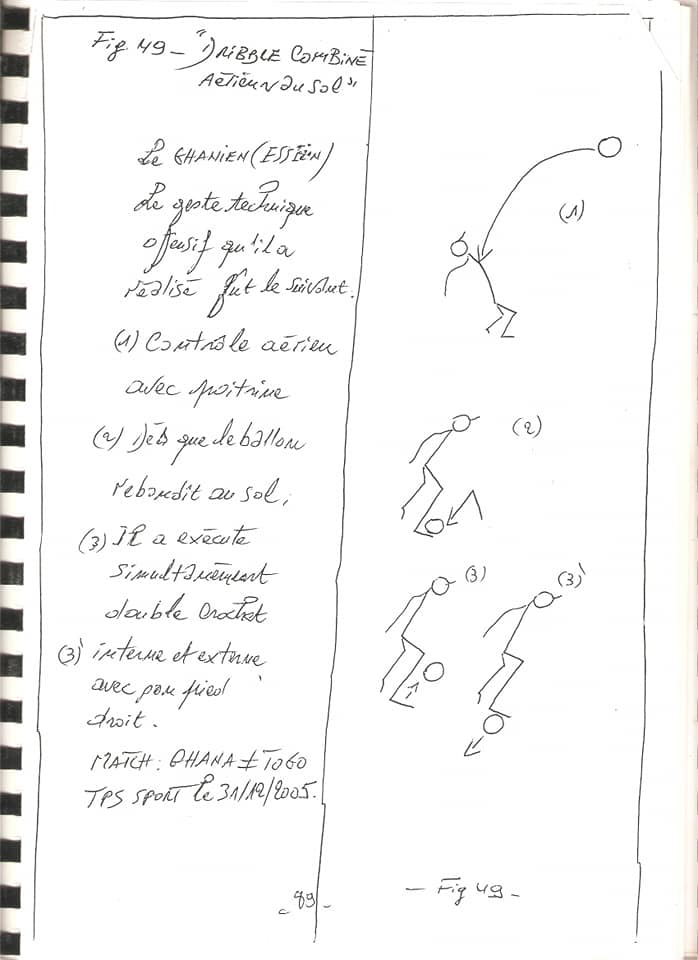 Fig. 49 - "DRIBBLE COMBINÉ
Aérien au sol"
Le GHANIEN (ESSIEN)
Le geste technique
offensif qu'il a
réalisé fût le suivant.
(1) Contrôle aérien
avec poitrine
(2) Dès que le ballon
rebondit au sol,
(3) Il a exécuté
simultanément
double crochet
(3)' interne et externe
avec son pied
droit.
MATCH: GHANA ≠ TOGO
TPS SPORT le 31/12/2005.
- 89 -
(1)
(2)
(3)
(3)'
- Fig 49 -